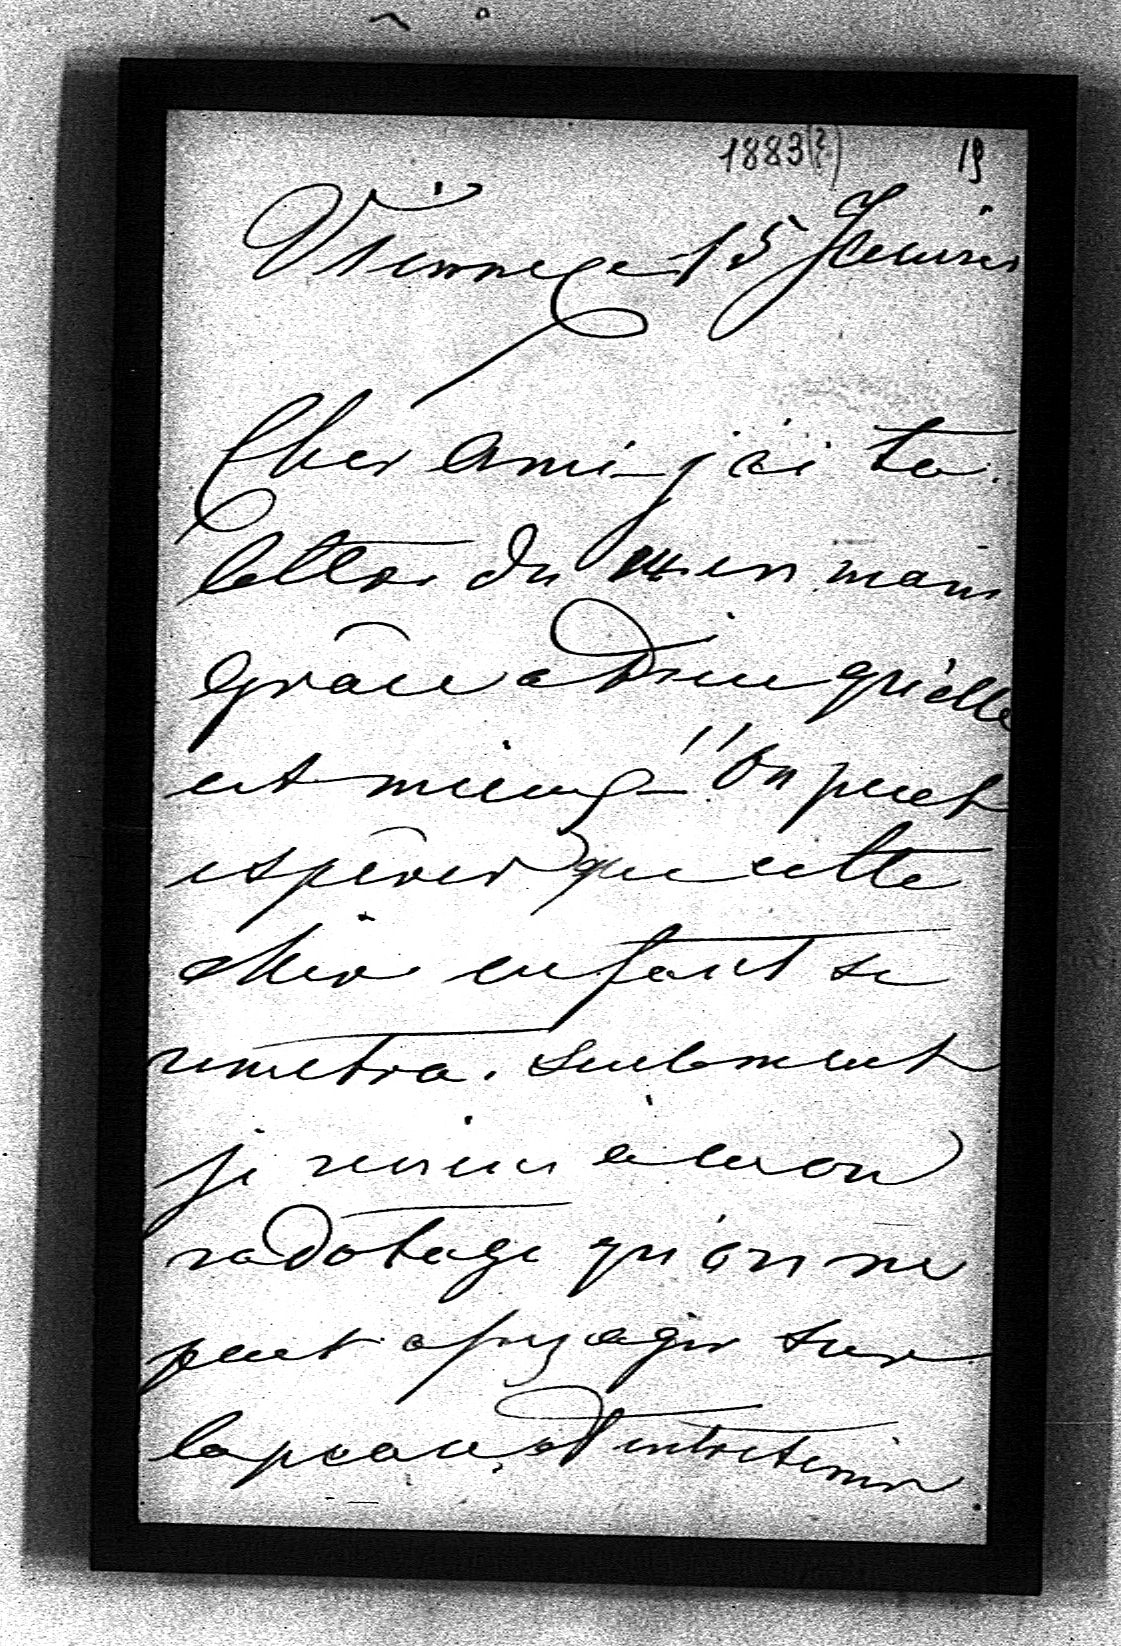 1883(?) 19
Vienne ce 15 Janvier
Cher Ami j'ai ta
lettre du 14 en main
Grâce a Dieu qu'elle
est mieux – !! On peut
espèrer que cette
chère enfant se
remettra. Seulement
je reviens à mon
radotage qu'on ne
peut assez agir sur
la peau, et entretenir